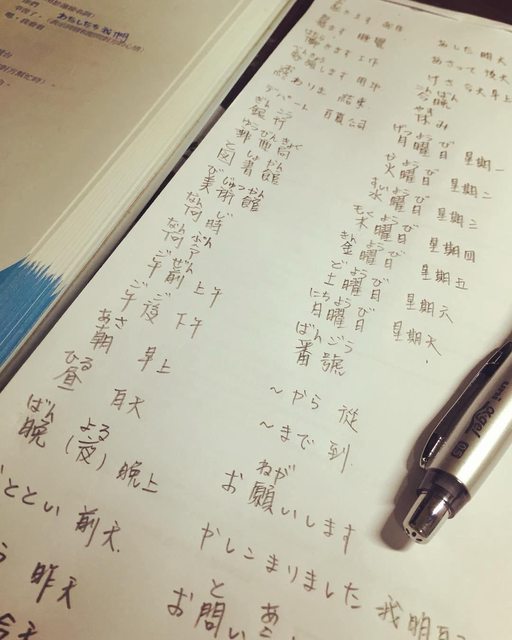 わたしたち 我們
起きます 起床
寝ます 睡覺
働きます 工作
勉強します 用功
終わります 結束
デパート 百貨公司
ぎんこう
銀行
ゆうびんきょく
郵便局
としょかん
図書館
びじゅつかん
美術館
なんじ
何時
なんぷん
何分
ごぜん
午前 上午
ごご
午後 下午
あさ
朝 早上
ひる
昼 白天
ばん よる
晩(夜) 晚上
おととい 前天
昨天
今天
あした 明天
あさって 後天
けさ 今天早上
こんばん
今晩
やす
休み
げつようび
月曜日 星期一
かようび
火曜日 星期二
すいようび
水曜日 星期三
もくようび
木曜日 星期四
きんようび
金曜日 星期五
どようび
土曜日 星期六
にちようび
日曜日 星期天.
ばんごう
番號
~から 從
~まで 到
ねが
お願いします
かしこまりました 我明白
と あ
お問い
uni